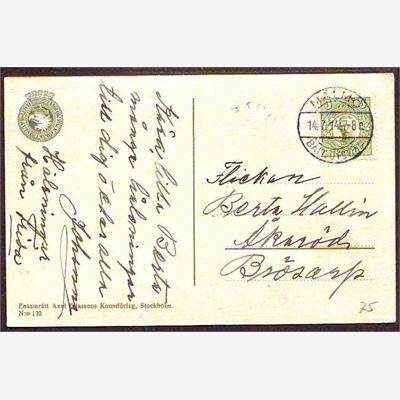 Kära lilla Berta
många hälsningar
till dig och alla
Johanna
Hälsningar
från Frida
Ensamrätt Axel Eliassons Konstförlag, Stockholm.
N:o 132
MALMÖ
14.7.14.7-8 F.
Flickan
Berta Hallin
Åkaröd
Brösarp
75